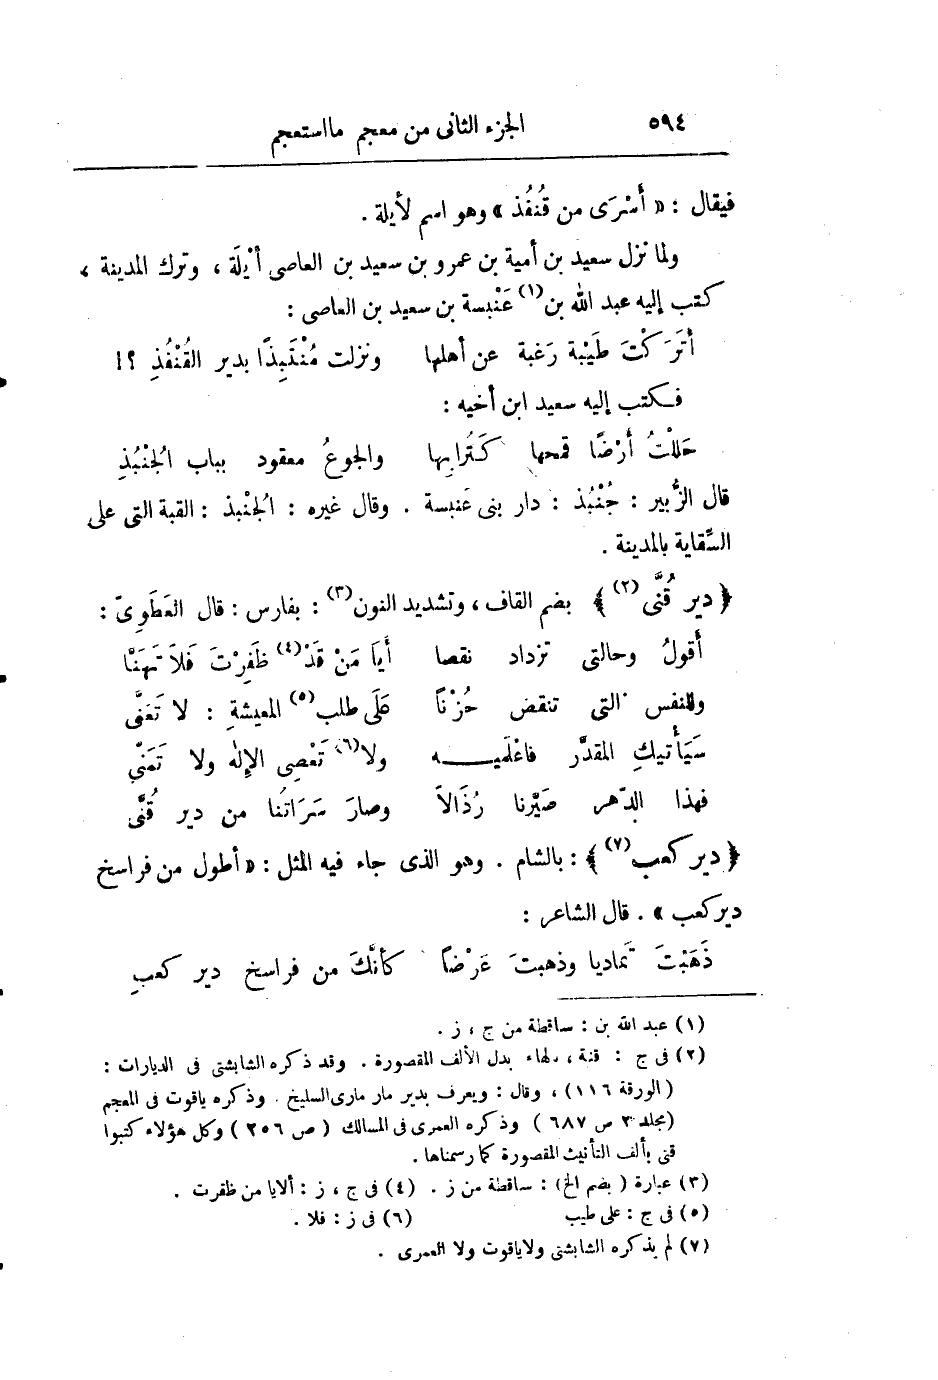 ٥٩٤ الجزء الثانى من معجم ما استعجم
فيقال : « أَسْرَى من قُنفُذ » وهو اسم لأيلة .
ولما نزل سعيد بن أمية بن عمرو بن سعيد بن العاصى أَيْلَة ، وترك المدينة ،
كتب إليه عبد الله بن(١) عَنْبسة بن سعيد بن العاصى :
أتَرَكْتَ طَيْبة رَغبة عن أهلها ونزلت مُنْتَبِذًا بدير القُنْفُذِ ؟!
فكتب إليه سعيد ابن أخيه :
حَللْتُ أَرْضًا قمحها كَتُرابِها والجوعُ معقود بباب الجُنْبُذِ
قال الزُّبير : جُنْبُذ : دار بنى عَنبسة . وقال غيره : الجُنْبذ : القبة التى على
السِّقاية بالمدينة .
﴿ دير قُنَّى(٢) ﴾ بضم القاف ، وتشديد النون(٣) : بفارس : قال العَطَوِىّ :
أقولُ وحالتى تزداد نقصا أَيَا مَنْ قَدْ(٤) ظَفِرْتَ فَلاَ تَهَنَّا
وللنفس التى تنقض حُزْنًا عَلَى طلب(٥) المعيشةِ : لا تَعَنَّى
سَيَأْتيكِ المقدَّر فاعْلَميـــه ولا(٦) تَعْصِى الإلٰه ولا تَمَنَّىْ
فهذا الدّهر صَيَّرنا رُذَالاً وصارَ سَرَاتُنا من دير قُنَّى
﴿ دير كعب(٧) ﴾ : بالشام . وهو الذى جاء فيه المثل : « أطول من فراسخ
دير كعب » . قال الشاعر :
ذَهَبْتَ تماديا وذهبتَ عَرْضًا كأنَّكَ من فراسخ دير كعبِ
(١) عبد الله بن : ساقطة من ج ، ز .
(٢) فى ج : قنة ، بهاء بدل الألف المقصورة . وقد ذكره الشابشتى فى الديارات :
(الورقة ١١٦) ، وقال : ويعرف بدير مار مارى السليخ . وذكره ياقوت فى المعجم
(مجلد ٢ ص ٦٨٧ ) وذكره العمرى فى المسالك ( ص ٢٥٦ ) وكل هؤلاء كتبوا
قنى بألف التأنيث المقصورة كما رسمناها .
(٣) عبارة ( بضم الخ ) : ساقطة من ز . (٤) فى ج ، ز : ألايا من ظفرت .
(٥) فى ج : على طيب (٦) فى ز : فلا .
(٧) لم يذكره الشابشتى ولا ياقوت ولا العمرى .